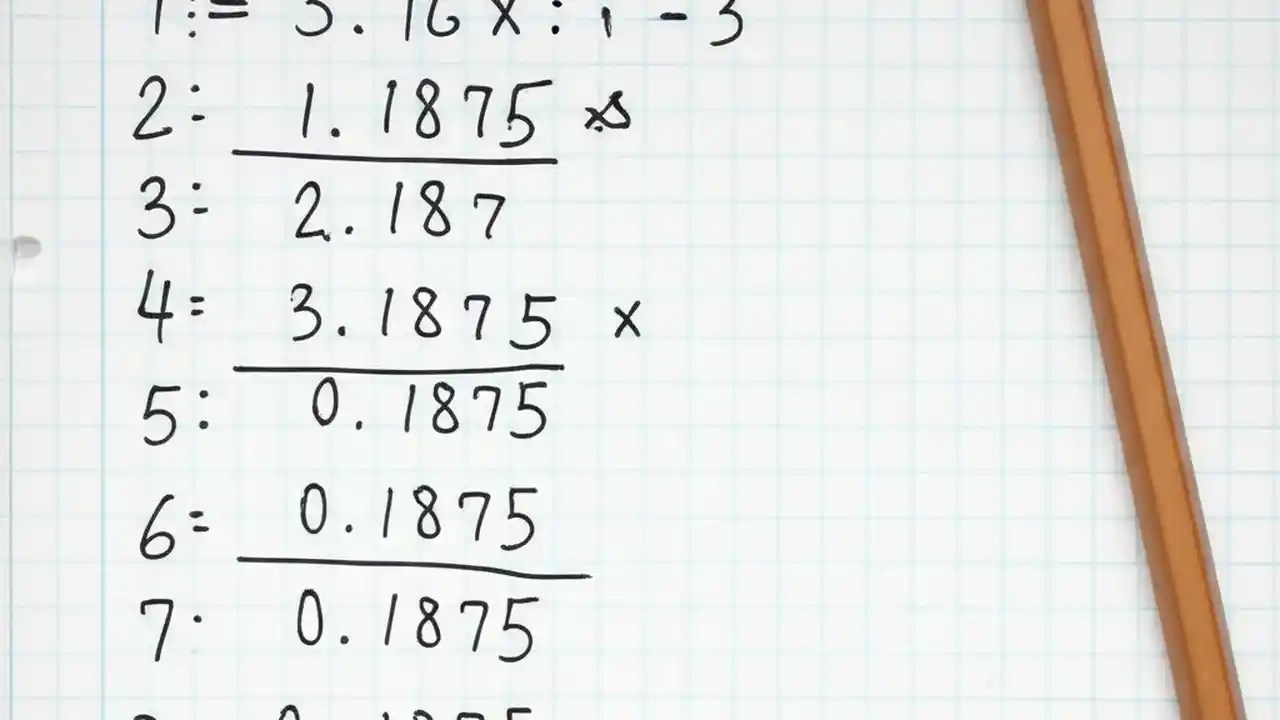 2: 1.1875
3: 2.187
4= 3.1875 x
5: 0.1875
6= 0.1875
7. 0.1875